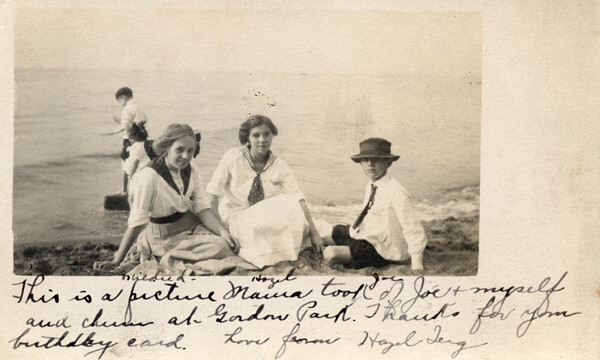 Mildred Hazel Joe
This is a picture Mama took of Joe & myself
and chum at Gordon Park. Thanks for your
birthday card. Love from Hazel